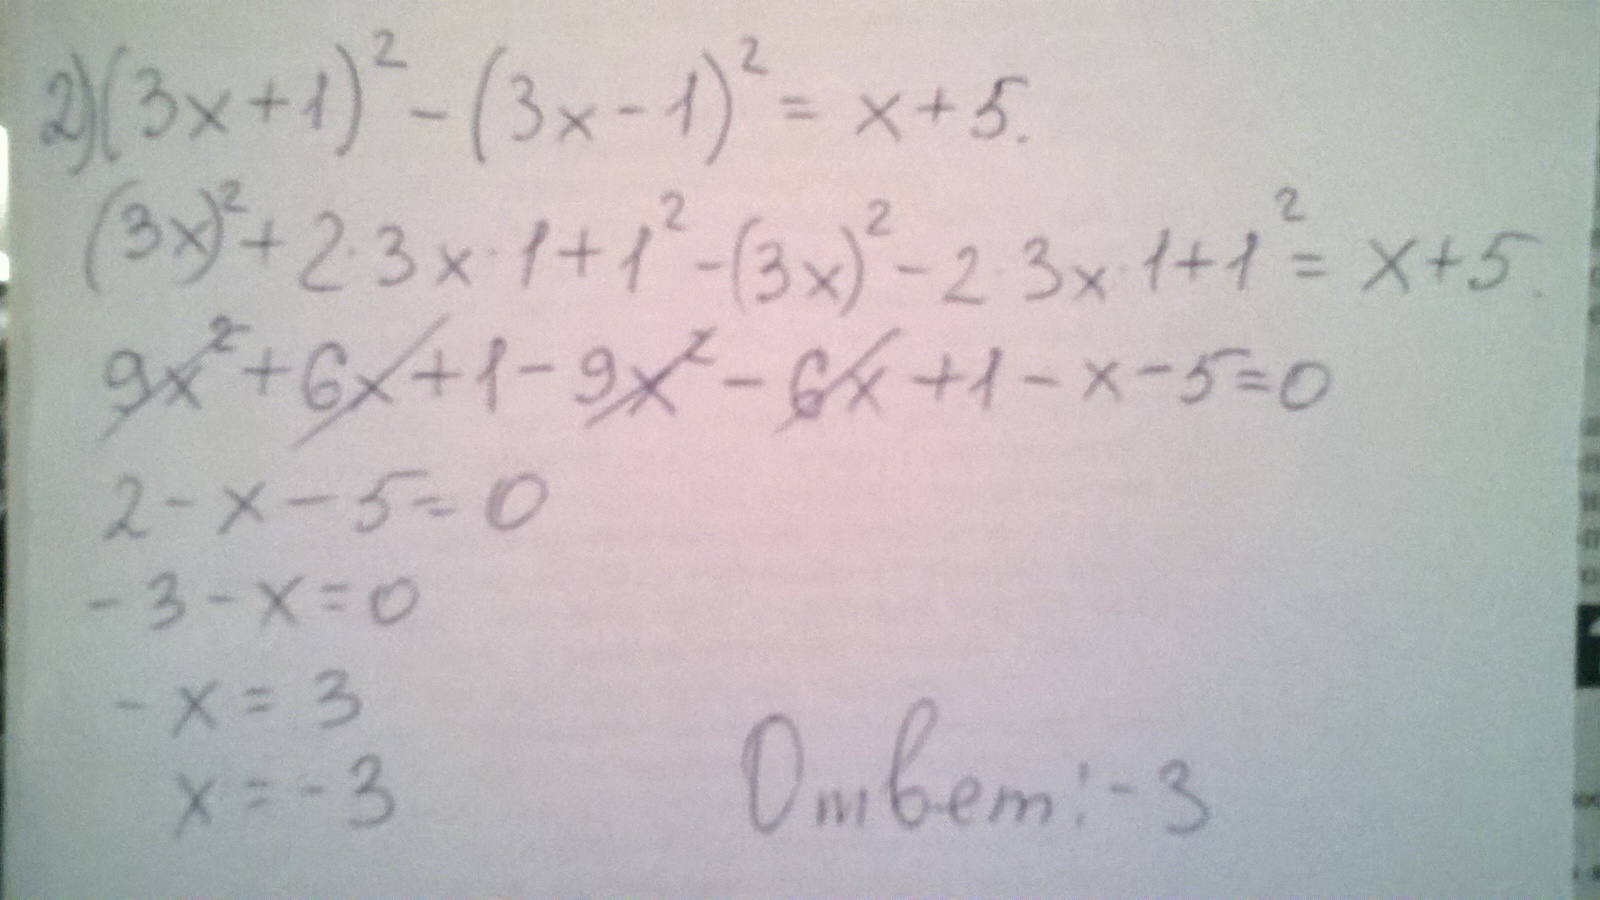 2) (3x+1)² - (3x-1)² = x+5.
(3x)² + 2·3x·1+1² - (3x)² - 2·3x·1+1² = x+5.
9x² + 6x + 1 - 9x² - 6x + 1 - x - 5 = 0
2 - x - 5 = 0
- 3 - x = 0
- x = 3
x = - 3
Ответ: - 3